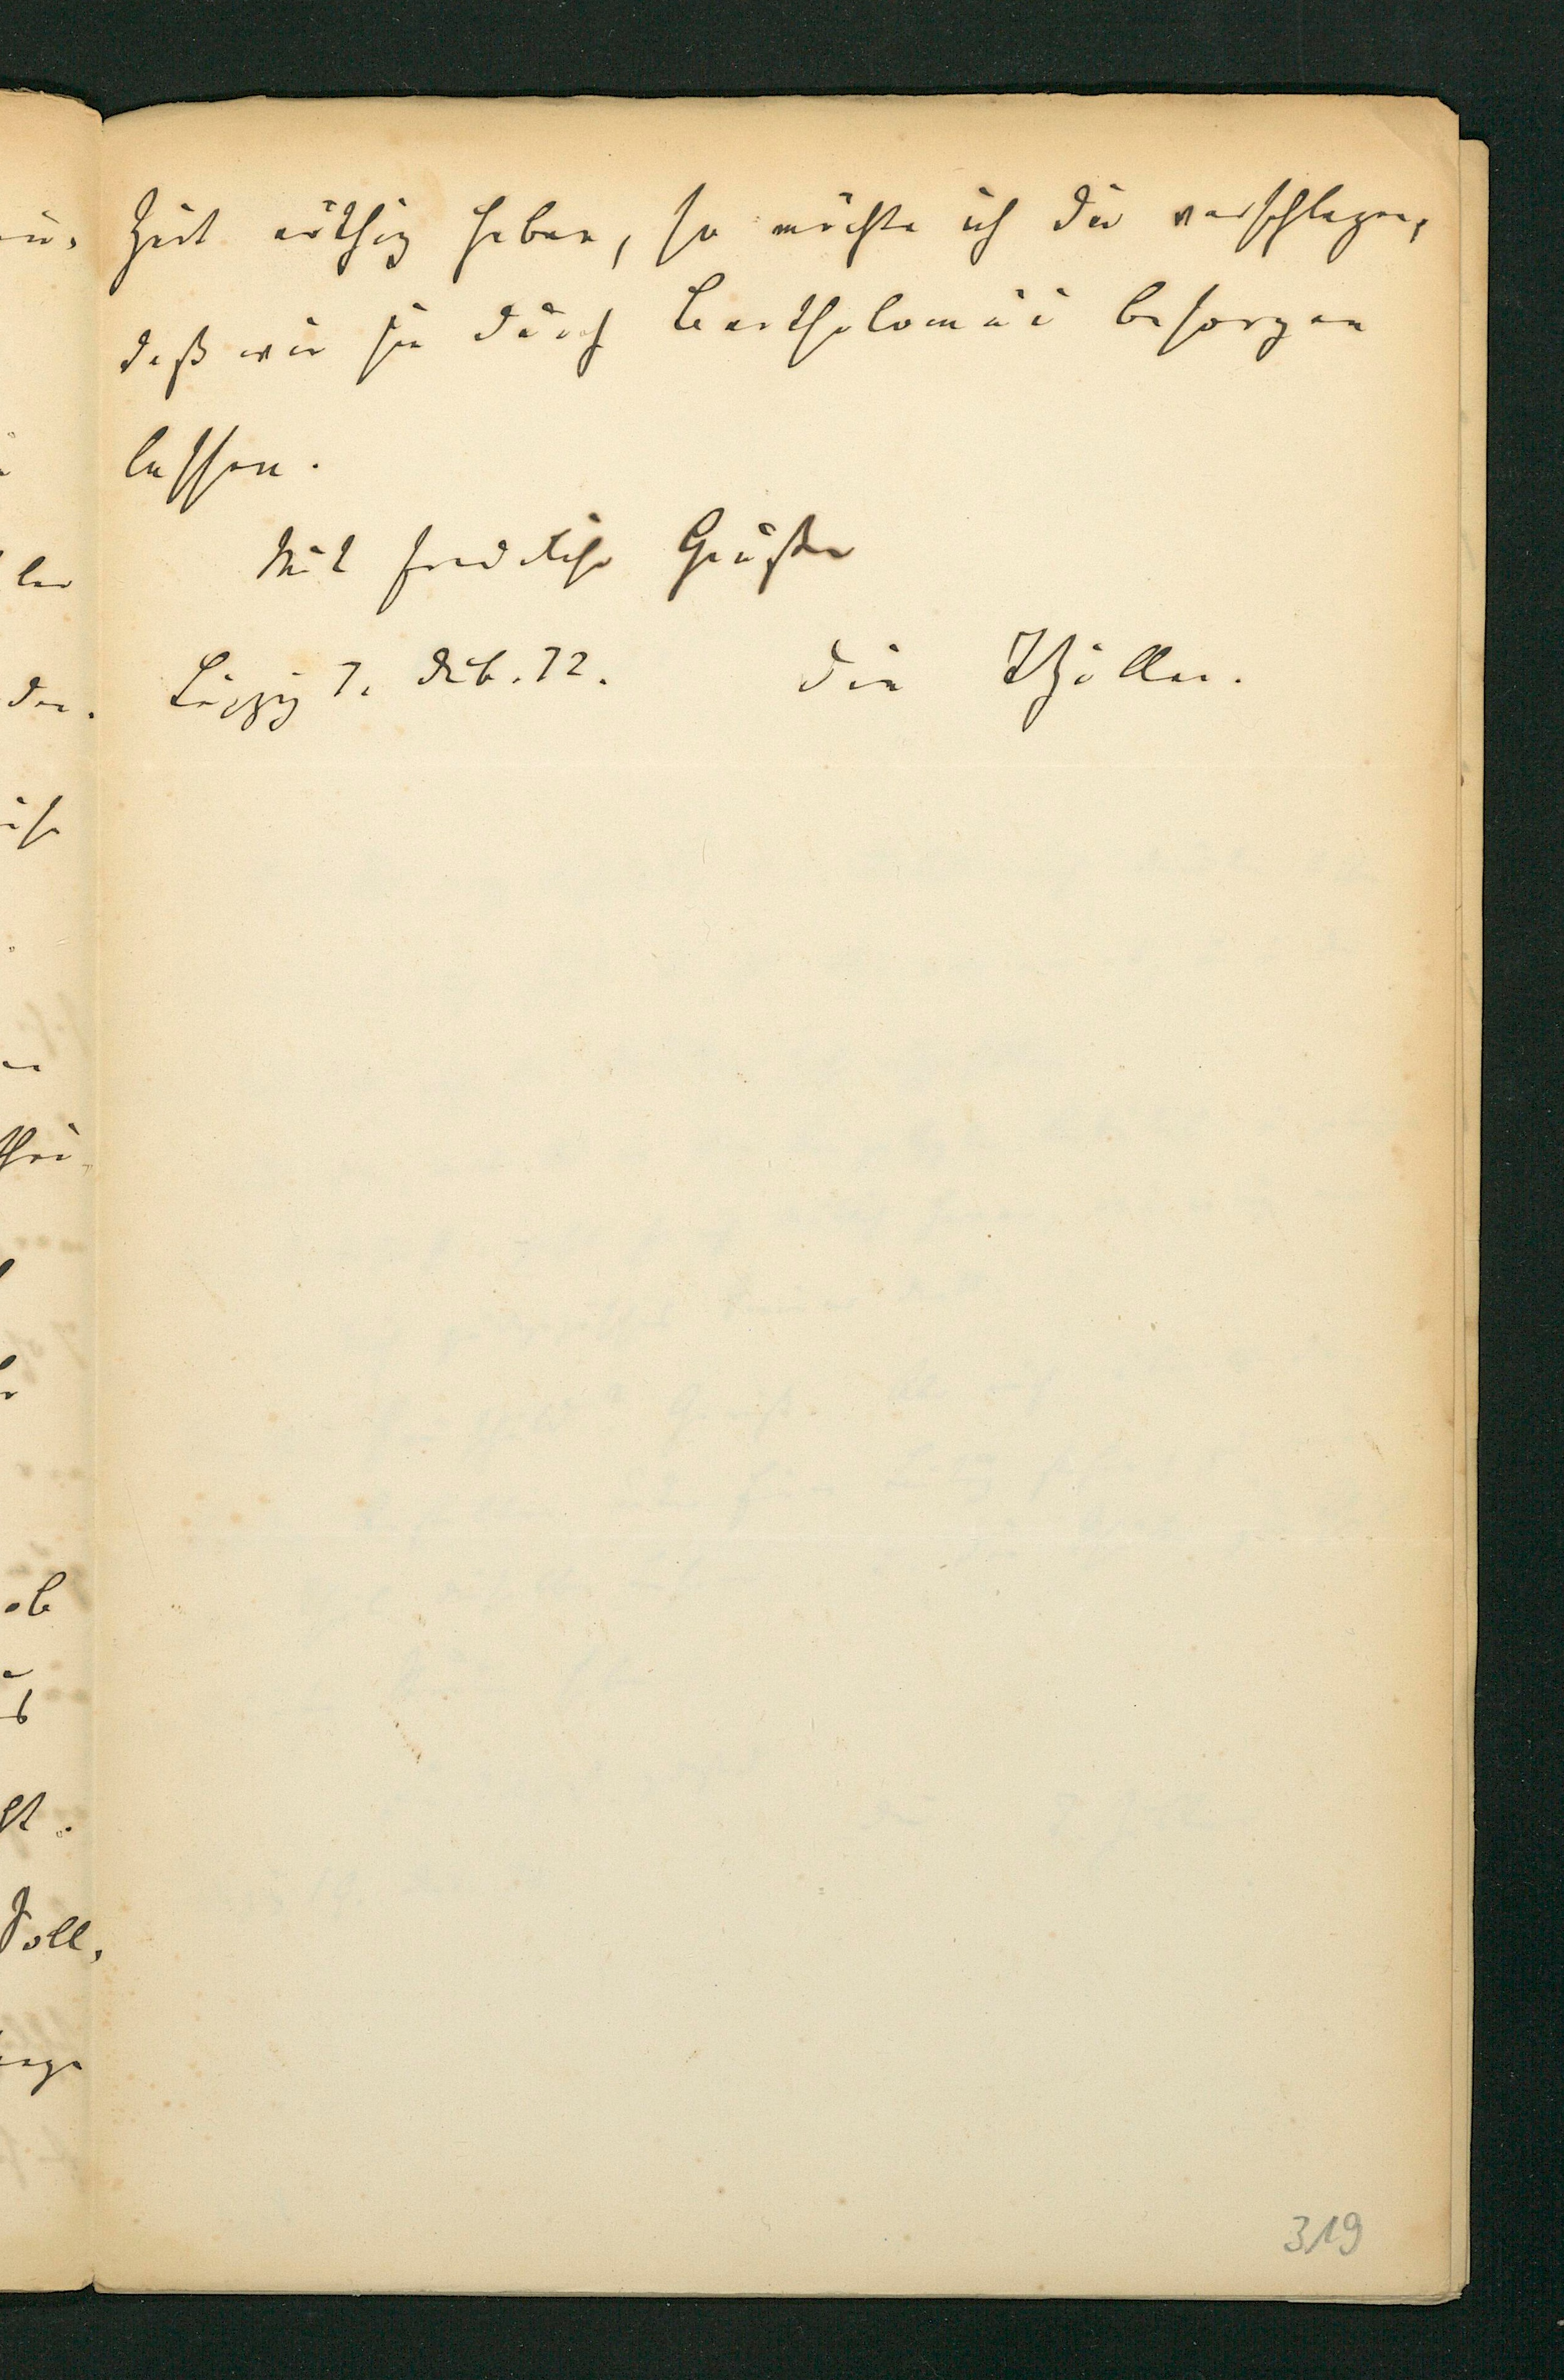 Zeit nöthig haben, so möchte ich Dir vorschlagen,
daß wir sie durch Bartholomäi besorgen
lassen.
Mit freundlichem Gruße
Leipzig 7. Dec. 72.
Dein TZiller.
319